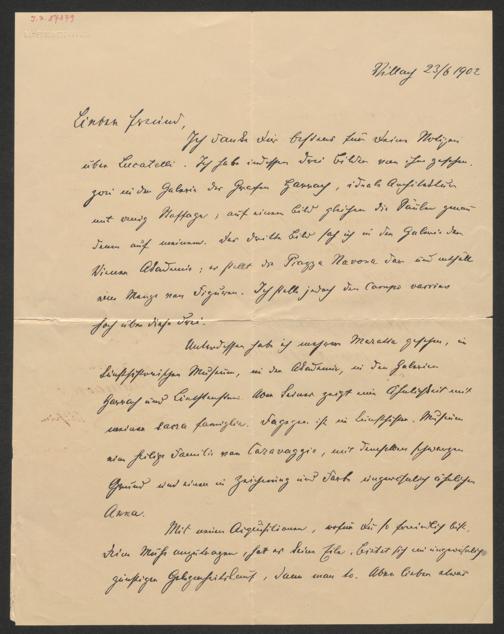 J.N. 87879
Villach 23/6 1902
Lieber Freund,
Ich danke Dir bestens für Deine Notizen
über Lucatelli. Ich habe indessen drei Bilder von ihm gesehen.
zwei in der Galerie des Grafen Harrach, ideale Architektur
mit wenig Staffage; auf einem Bild gleichen die Säulen genau
denen auf meinem. Das dritte Bild sah ich in der Galerie der
Wiener Akademie; es stellt die Piazza Navona dar und enthält
eine Menge von Figuren. Ich stelle jedoch den Campo vaccino
hoch über diese drei.
Unterdessen hab ich mehrere Maratta gesehen, im
kunsthistorischen Museum, in der Akademie, in den Galerien
Harrach und Liechtenstein. Aber keiner zeigt eine Ähnlichkeit mit
meiner sacra famiglia. Dagegen ist im kunsthistor. Museum
eine heilige Familie von Caravaggio, mit demselben schwarzen
Grund und einer in Zeichnung und Farbe ungewöhnlich ähnlichen
Anna.
Mit neuen Aquisitionen, wofür Du so freundlich bist,
Deine Mühe anzutragen, hat es keine Eile. bietet sich ein ungewöhnlich
günstiger Gelegenheitskauf, dann man to. Aber lieber etwas